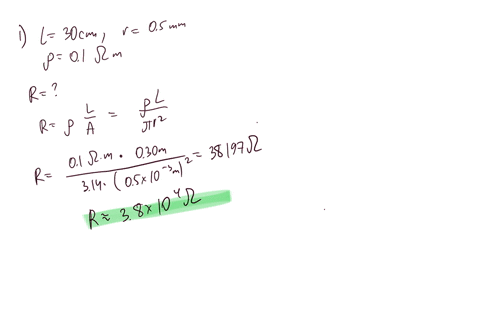 1) L = 30cm, r = 0.5mm
ρ = 0.1 Ω m
R = ?
R = ρ L/A = ρL/πr²
R = (0.1 Ω·m · 0.30m)/(3.14 · (0.5×10⁻³m)²) = 38197Ω
R ≈ 3.8×10⁴Ω